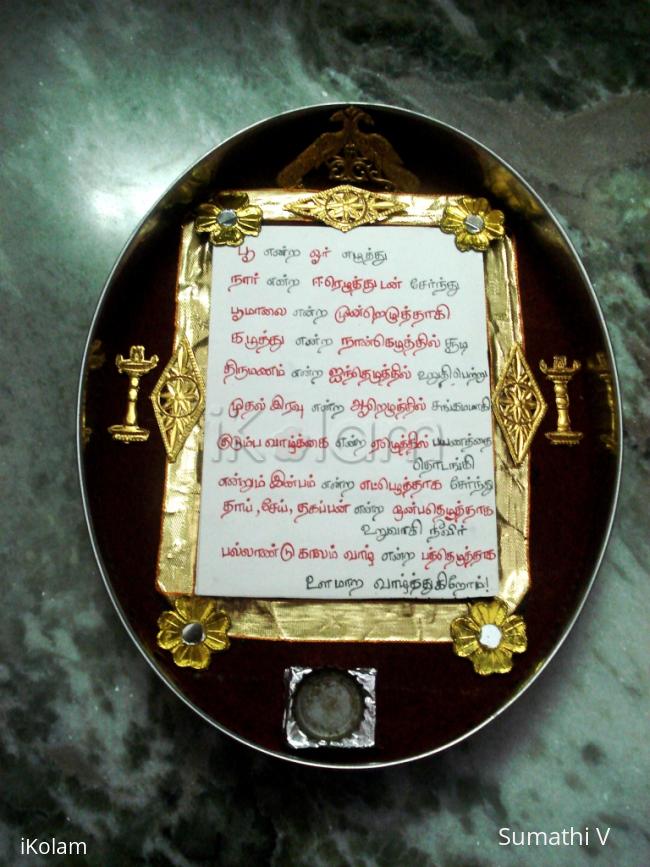 பூ என்ற ஓர் எழுத்து
நார் என்ற ஈரெழுத்துடன் சேர்ந்து
பூமாலை என்ற மூன்றெழுத்தாகி
கழுத்து என்ற நான்கெழுத்தில் சூடி
திருமணம் என்ற ஐந்தெழுத்தில் உறுதிபெற்று
முதல் இரவு என்ற ஆறெழுத்தில் சங்கமமாகி
குடும்ப வாழ்க்கை என்ற ஏழெழுத்தில் பயணத்தை
தொடங்கி
என்றும் இன்பம் என்ற எட்டெழுத்தாக சேர்ந்து
தாய், சேய், தகப்பன் என்ற ஒன்பதெழுத்தாக
உறுவாகி நீவிர்
பல்லாண்டு காலம் வாழ் என்ற பத்தெழுத்தாக
உளமாற வாழ்த்துகிறோம்!
iKolam
iKolam
Sumathi V